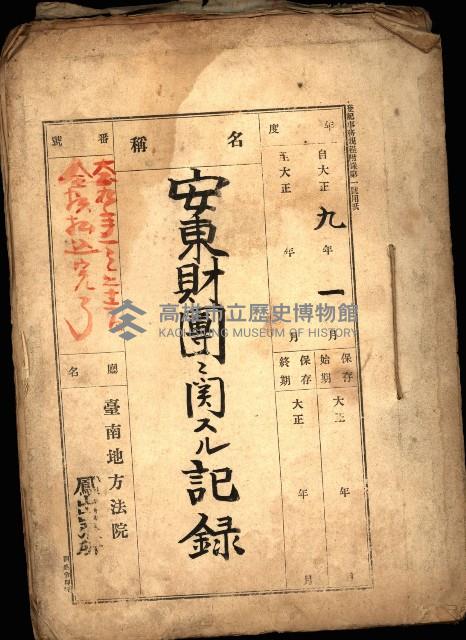 登記事務規程附録第一號用紙
年度
自大正九年一月
至大正 年 月
保存始期 大正 年 月
保存終期 大正 年 月
名稱
安東財團ニ関スル記録
番號
廳名
臺南地方法院
高雄市立歷史博物館
KAOHSIUNG MUSEUM OF HISTORY